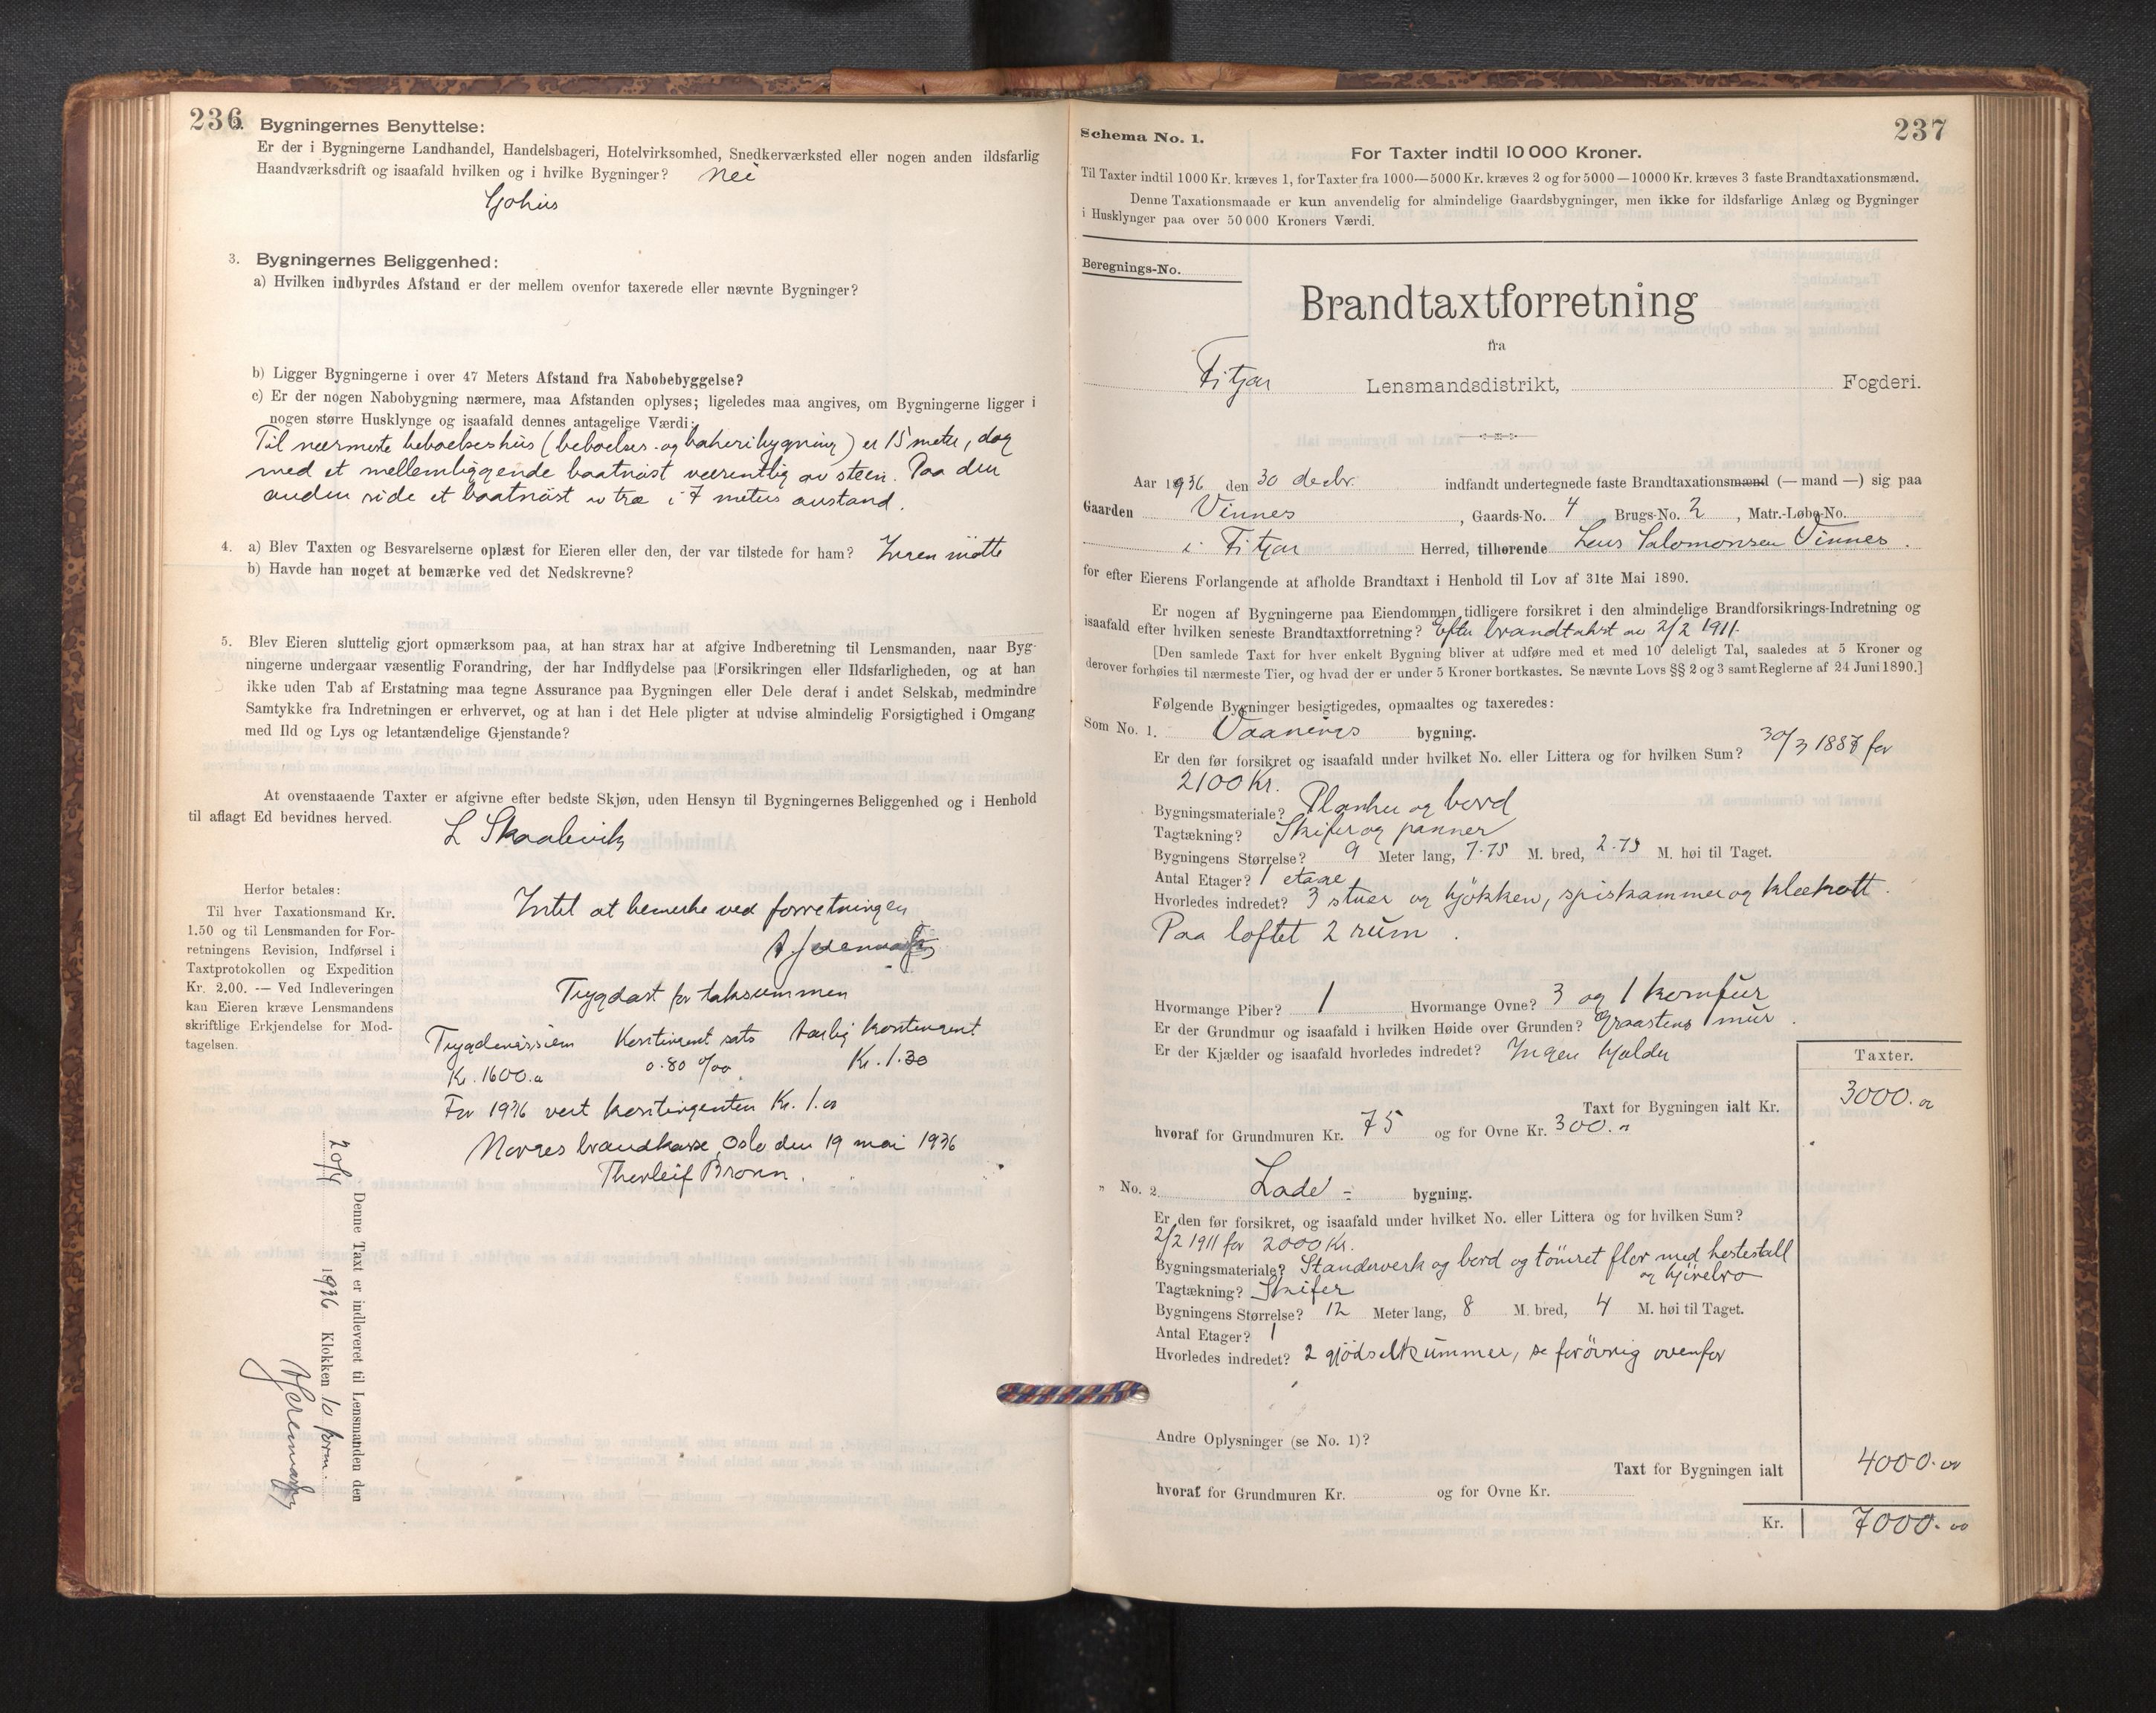 236
2. Bygningernes Benyttelse:
Er der i Bygningerne Landhandel, Handelsbageri, Hotelvirksomhed, Snedkerværksted eller nogen anden ildsfarlig
Haandværksdrift og isaafald hvilken og i hvilke Bygninger? Nei
Sjøhus
3. Bygningernes Beliggenhed:
a) Hvilken indbyrdes Afstand er der mellem ovenfor taxerede eller nævnte Bygninger?
b) Ligger Bygningerne i over 47 Meters Afstand fra Nabobebyggelse?
c) Er der nogen Nabobygning nærmere, maa Afstanden oplyses; ligeledes maa angives, om Bygningerne ligger i
nogen større Husklynge og isaafald dennes antagelige Værdi:
Til nærmeste beboelseshus (beboelses- og bakeribygning) er 15 meter, dog
med et mellemliggende baatnøst væsentlig av steen. Paa den
anden side et baatnøst av træ i 7 meters avstand.
4. a) Blev Taxten og Besvarelserne oplæst for Eieren eller den, der var tilstede for ham? Ingen møtte
b) Havde han noget at bemærke ved det Nedskrevne?
5. Blev Eieren sluttelig gjort opmærksom paa, at han strax har at afgive Indberetning til Lensmanden, naar Byg-
ningerne undergaar væsentlig Forandring, der har Indflydelse paa Forsikringen eller Ildsfarligheden, og at han
ikke uden Tab af Erstatning maa tegne Assurance paa Bygningen eller Dele deraf i andet Selskab, medmindre
Samtykke fra Indretningen er erhvervet, og at han i det Hele pligter at udvise almindelig Forsigtighed i Omgang
med Ild og Lys og letantændelige Gjenstande?
At ovenstaaende Taxter er afgivne efter bedste Skjøn, uden Hensyn til Bygningernes Beliggenhed og i Henhold
til aflagt Ed bevidnes herved.
L Skaalevik
Herfor betales:
Til hver Taxationsmand Kr.
1.50 og til Lensmanden for For-
retningens Revision, Indførsel i
Taxtprotokollen og Expedition
Kr. 2.00. — Ved Indleveringen
kan Eieren kræve Lensmandens
skriftlige Erkjendelse for Mod-
tagelsen.
Intet at bemerke ved forretningen
Trygdast for taksummen
Trygdenissum Kontingent sats Aarlig kontingent
Kr. 1600.- 0.80 0/00 Kr. 1.30
For 1936 vert kontingenten Kr. 1.00
Norges brandkasse, Oslo den 19 mai 1936
Thorleif Bronn.
Denne Taxt er indleveret til Lensmanden den
20/4 1936 Klokken 10 form.
237
Schema No. 1.
For Taxter indtil 10 000 Kroner.
Til Taxter indtil 1000 Kr. kræves 1, for Taxter fra 1000—5000 Kr. kræves 2 og for 5000—10000 Kr. kræves 3 faste Brandtaxationsmænd.
Denne Taxationsmaade er kun anvendelig for almindelige Gaardsbygninger, men ikke for ildsfarlige Anlæg og Bygninger
i Husklynger paa over 50 000 Kroners Værdi.
Beregnings-No.
Brandtaxtforretning
fra
Fitjar Lensmandsdistrikt, Fogderi.
Aar 1936 den 30 decbr. indfandt undertegnede faste Brandtaxationsmænd (— mand —) sig paa
Gaarden Vinnes, Gaards-No. 4 Brugs-No. 2, Matr.-Løbe-No.
i Fitjar Herred, tilhørende Lars Salomonsen Vinnes.
for efter Eierens Forlangende at afholde Brandtaxt i Henhold til Lov af 31te Mai 1890.
Er nogen af Bygningerne paa Eiendommen tidligere forsikret i den almindelige Brandforsikrings-Indretning og
isaafald efter hvilken seneste Brandtaxtforretning? Efter brandtakst av 2/2 1911.
[Den samlede Taxt for hver enkelt Bygning bliver at udføre med et med 10 deleligt Tal, saaledes at 5 Kroner og
derover forhøies til nærmeste Tier, og hvad der er under 5 Kroner bortkastes. Se nævnte Lovs §§ 2 og 3 samt Reglerne af 24 Juni 1890.]
Følgende Bygninger besigtigedes, opmaaltes og taxeredes:
Som No. 1. Vaanings bygning.
Er den før forsikret og isaafald under hvilket No. eller Littera og for hvilken Sum? 30/3 1887 for
2100 Kr.
Bygningsmateriale? Planker og bord
Tagtækning? Skifer og panner
Bygningens Størrelse? 9 Meter lang, 7.75 M. bred, 2.75 M. høi til Taget.
Antal Etager? 1 etage
Hvorledes indredet? 3 stuer og kjøkken, spiskammer og klækott.
Paa loftet 2 rum.
Hvormange Piber? 1 Hvormange Ovne? 3 og 1 komfur
Er der Grundmur og isaafald i hvilken Høide over Grunden? Graastens mur.
Er der Kjælder og isaafald hvorledes indredet? Ingen kjelder
Taxter.
Taxt for Bygningen ialt Kr. 3000.00
hvoraf for Grundmuren Kr. 75 og for Ovne Kr. 300.-
„ No. 2. Lade- bygning.
Er den før forsikret, og isaafald under hvilket No. eller Littera og for hvilken Sum?
2/2 1911 for 2000 Kr.
Bygningsmateriale? Standerverk og bord og tømret flor med hestestall
og kjørebro
Tagtækning? Skifer
Bygningens Størrelse? 12 Meter lang, 8 M. bred, 4 M. høi til Taget.
Antal Etager? 1
Hvorledes indredet? 2 gjødselkummer, se forøvrig ovenfor
Andre Oplysninger (se No. 1)?
Taxt for Bygningen ialt 4000.00
hvoraf for Grundmuren Kr. og for Ovne Kr.
Kr. 7000.00